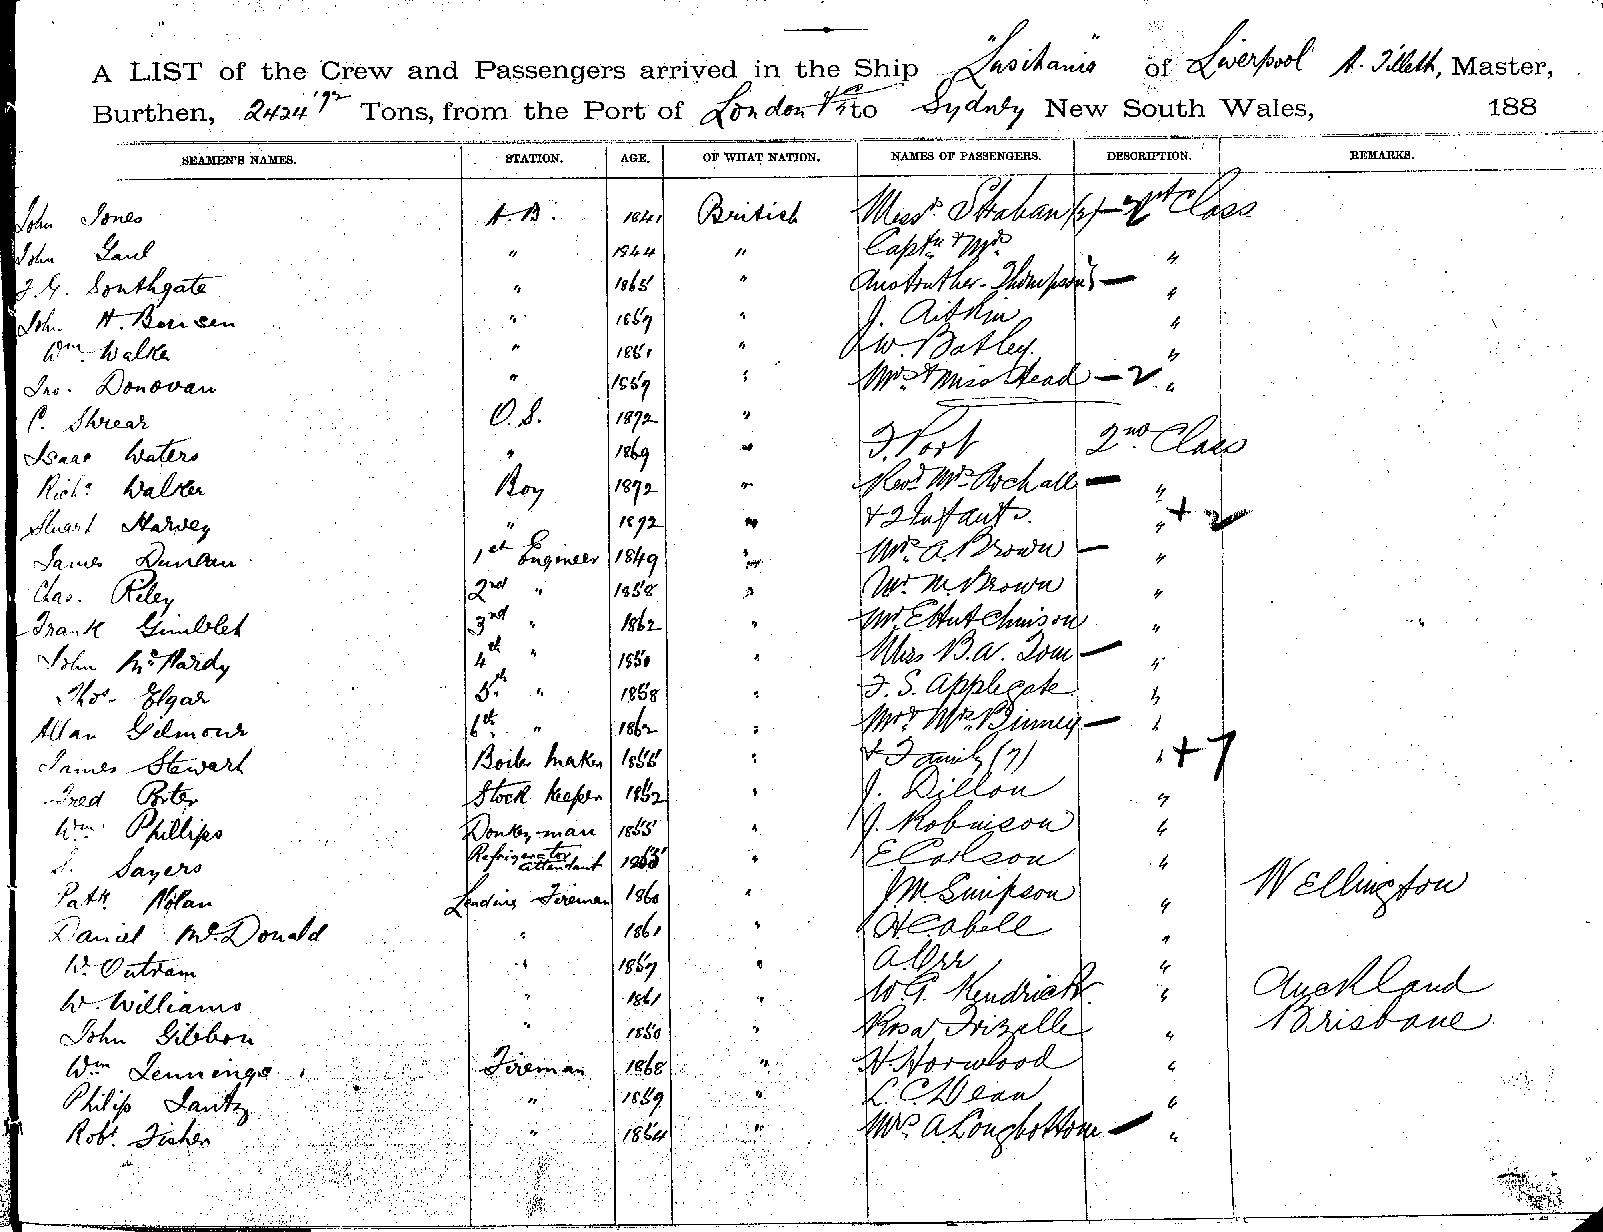 A LIST of the Crew and Passengers arrived in the Ship "Lusitania" of Liverpool A. Tilleth, Master,
Burthen, 2424 Tons, from the Port of London to Sydney New South Wales, 188
SEAMEN'S NAMES. STATION. AGE. OF WHAT NATION. NAMES OF PASSENGERS. DESCRIPTION. REMARKS.
John Jones A.B. 1841 British Messrs. Strahan (2) — Class
John Gaul " 1844 " Captn. & Mrs. "
Southgate " 1865 " Anstruther-Thompson } — "
John H. Bensen " 1859 " J. Aitkin "
Wm. Walker " 1861 " W. Batley. "
Jno. Donovan " 1859 " Mrs. & Miss Head — 2 "
C. Shrear O.S. 1872 " F. Port 2nd Class
Isaac Waters " 1869 "
Richd. Walker Boy 1872 " Revd. Mrs. Archall — "
Stuart Harvey " 1872 " & 2 Infants. " + 2
James Duncan 1st Engineer 1849 " Mrs. A. Brown — "
Chas. Riley 2nd " 1858 " Mr. M. Brown "
Frank Gimblet 3rd " 1862 " Mr. E Hutchinson "
John McHardy 4th " 1850 " Miss B.A. Tom — "
Thos. Elgar 5th " 1858 " F. S. Applegate "
Allan Gilmour 6th " 1862 " Mr & Mrs. Binney — "
James Stewart Boiler Maker 1855 " & Family (7) " + 7
Fred Porter Stock keeper 1852 " J. Dillon "
Wm. Phillips Donkey-man 1855 " J. Robinson "
Sayers Refrigerator attendant " E Carlson "
Patk. Nolan Leading Fireman 1860 " J. M Simpson " Wellington
Daniel McDonald " 1861 " H Cabell "
W. Outram " 1859 " A. Orr "
W. Williams " 1861 " W. G. Kendrick " Auckland
John Gibbon " 1850 " Rosa Frizelle " Brisbane
Wm Jennings Fireman 1868 " H. Horwood "
Philip Lantz " 1859 " L. C. Dean "
Robt. Fisher " 1864 " Mrs. A Longbottom — "